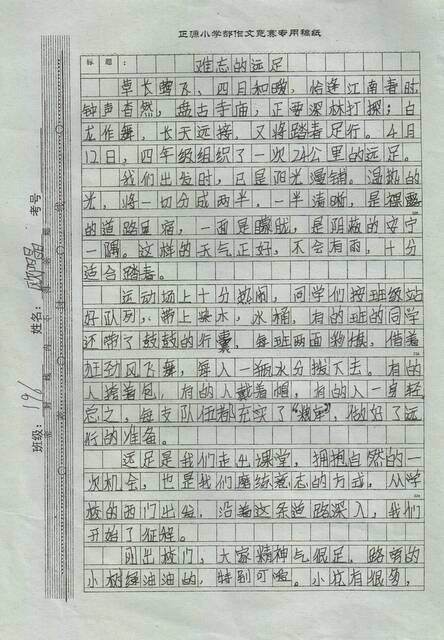 正源小学部作文竞赛专用稿纸
标题：难忘的远足
草长莺飞，四月和暖，恰逢江南春时
钟声杳然，盘古寺庙，正要深林打探；白
龙作舞，长天远接，又将踏春足行。4月
12日，四年级组织了一次24公里的远足。
我们出发时，已是阳光漫铺。温热的
光，将一切分成两半，一半清晰，是裸露
的道路里宿，一面是朦胧，是阴蔽的安宁
一隅。这样的天气正好，不会有雨，十分
适合踏春。
运动场上十分热闹，同学们按班级站
好队列，带上零水，水桶，有的班的同学
还带了鼓鼓的行囊，每班两面彩旗，借着
狂劲风飞舞，每人一瓶水分拨下去。有的
人挎着包，有的人戴着帽，有的人一身轻
总之，每支队伍都充实了“粮草”，做好了远
行的准备。
远足是我们走出课堂，拥抱自然的一
次机会，也是我们磨练意志的方式，从学
校的西门出发，沿着这条道路深入，我们
开始了征程。
刚出校门，大家精神气很足。路旁的
小树绿油油的，特别可爱。小花有很多，
考号
姓名：
班级：196